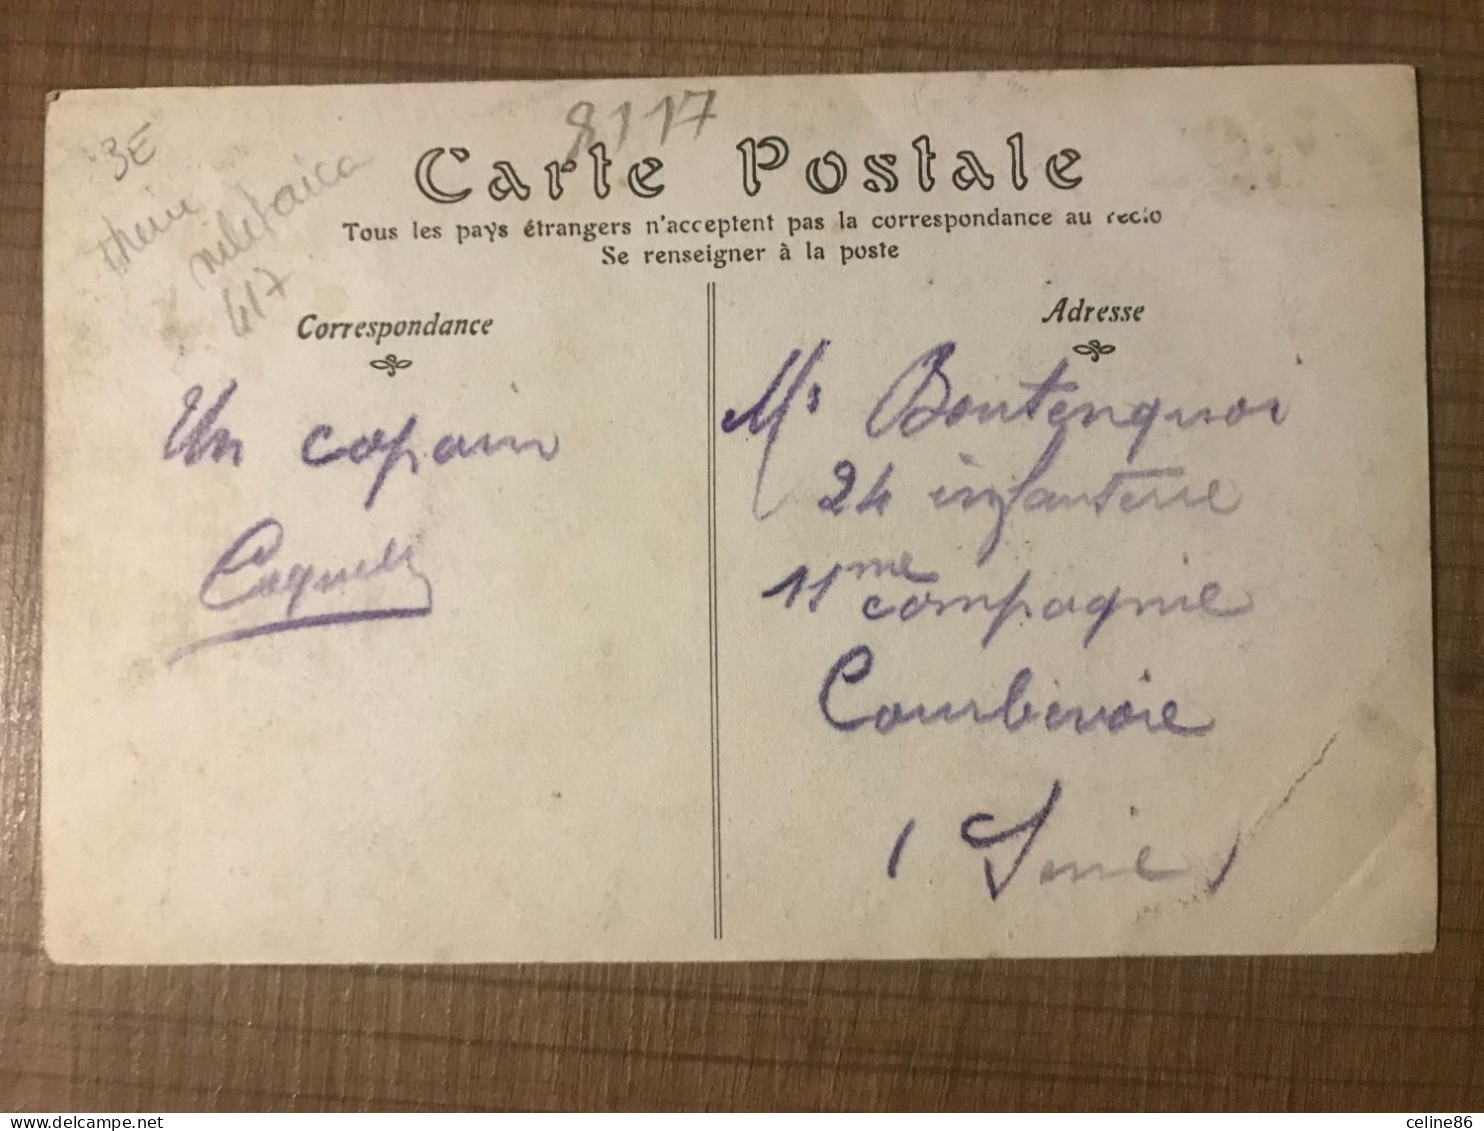 8117
3E
417
Carte Postale
Tous les pays étrangers n'acceptent pas la correspondance au recto
Se renseigner à la poste
Correspondance
Un copain
Adresse
Mr Boutenquoi
24 infanterie
11me compagnie
Courbevoie
(Seine)
delcampe.net
celine86